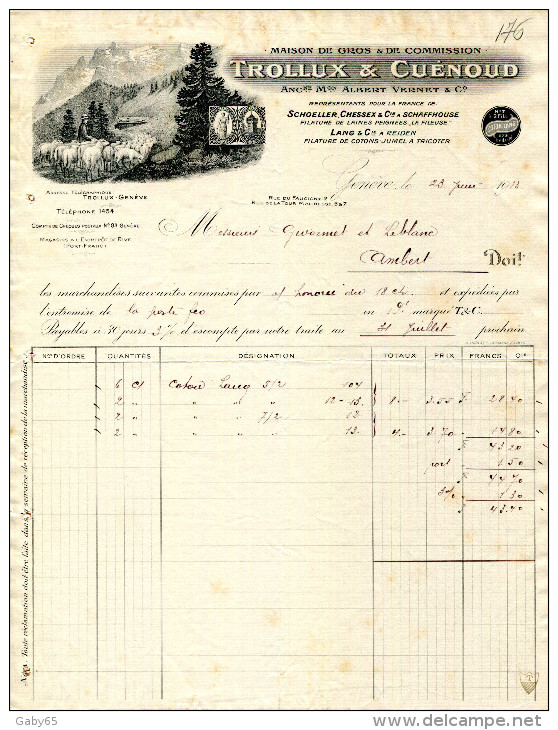 176
MAISON DE GROS & DE COMMISSION
TROLLUX & CUÉNOUD
ANCNE MON ALBERT VERNET & CO
REPRÉSENTANTS POUR LA FRANCE DE
SCHOELLER, CHESSEX & CIE A SCHAFFHOUSE
FILATURE DE LAINES PEIGNÉES "LA FILEUSE"
LANG & CIE A REIDEN
FILATURE DE COTONS JUMEL A TRICOTER
ADRESSE TÉLÉGRAPHIQUE
TROLLUX-GENÈVE
TÉLÉPHONE 1454
COMPTE DE CHÈQUES POSTAUX No
GENÈVE
MAGASINS A L'ENTREPÔT DE RIVE
(PORT-FRANC)
RUE DU FAUCIGNY
RUE DE LA TOUR MAÎTRESSE 5&7
Genève, le 23 Juin
Messieurs et Leblanc
Ambert Doit
les marchandises suivantes commises par honorée du 18 ct et expédiées par
l'entremise de la poste en marqué T&C.
Payables à 30 jours 3% d'escompte par notre traite au 31 Juillet prochain
Nos D'ORDRE QUANTITÉS DÉSIGNATION TOTAUX PRIX FRANCS CTS
6 Coton Lang 5/2 104
2 " " " " 12-13 8.- 3.55 F 28.40
2 " " " 7/2 12
2 " " " " 13 4.- 3.70 14.80
F 43.20
port 1.50
F 44.70
3% 1.30
F 43.40
NOTA. Toute réclamation doit être faite dans la semaine de réception de la marchandise
Gaby65
www.delcampe.net